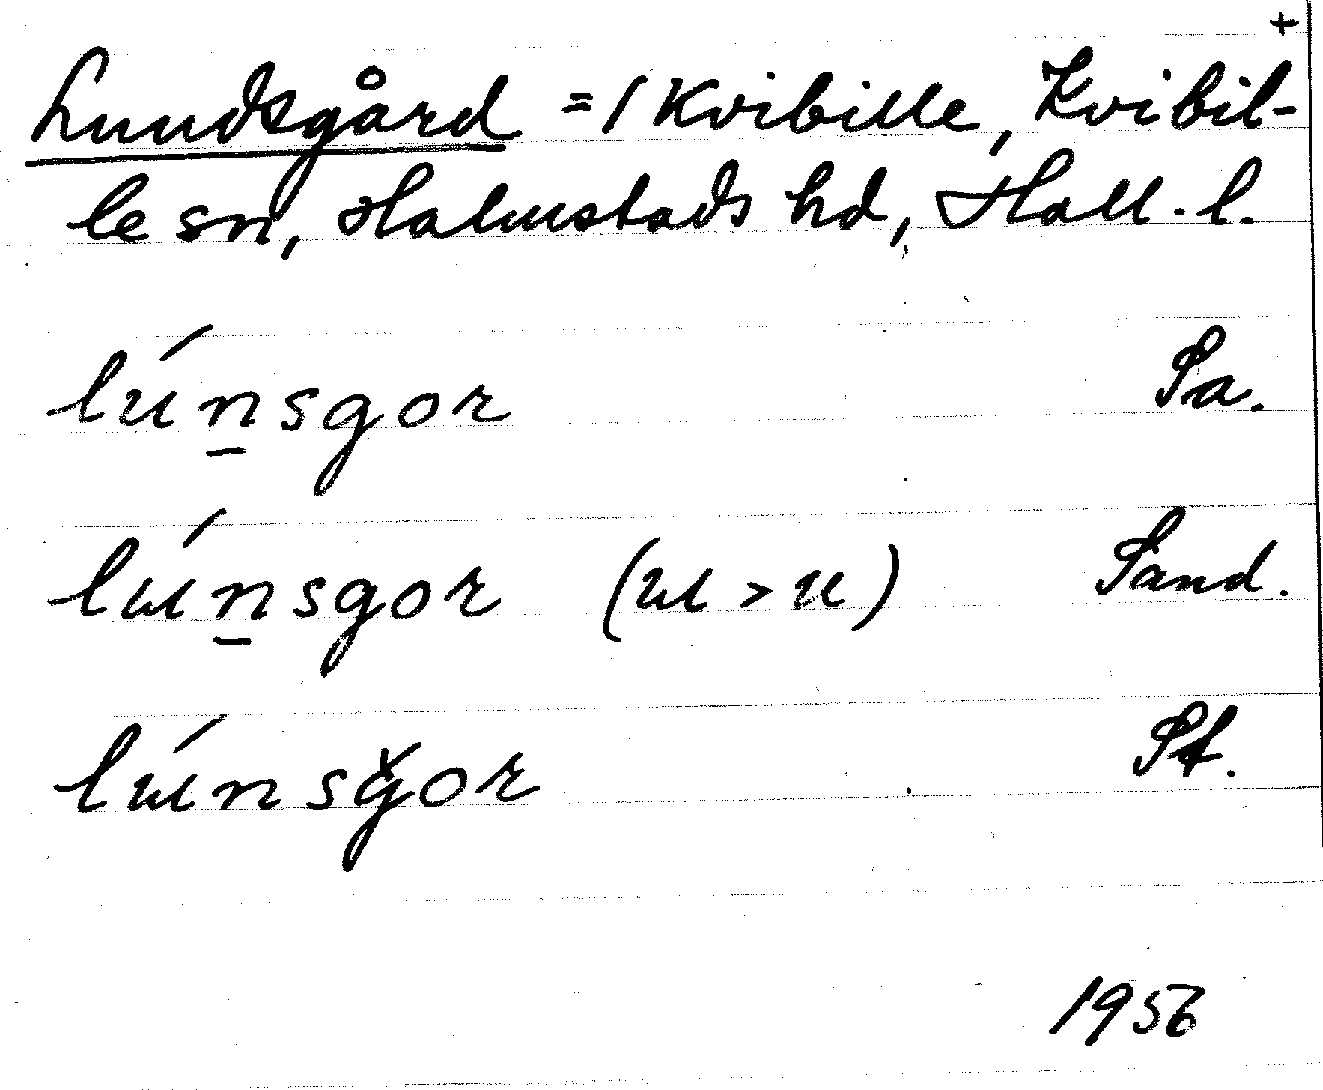 +
Lundsgård = 1 Kvibille, Kvibil-
le sn, Halmstads hd, Hall. l.
lún̲sgor Sa.
lɯ́n̲sgor (ɯ > u) Sand.
lɯ́nsǧor St.
1956